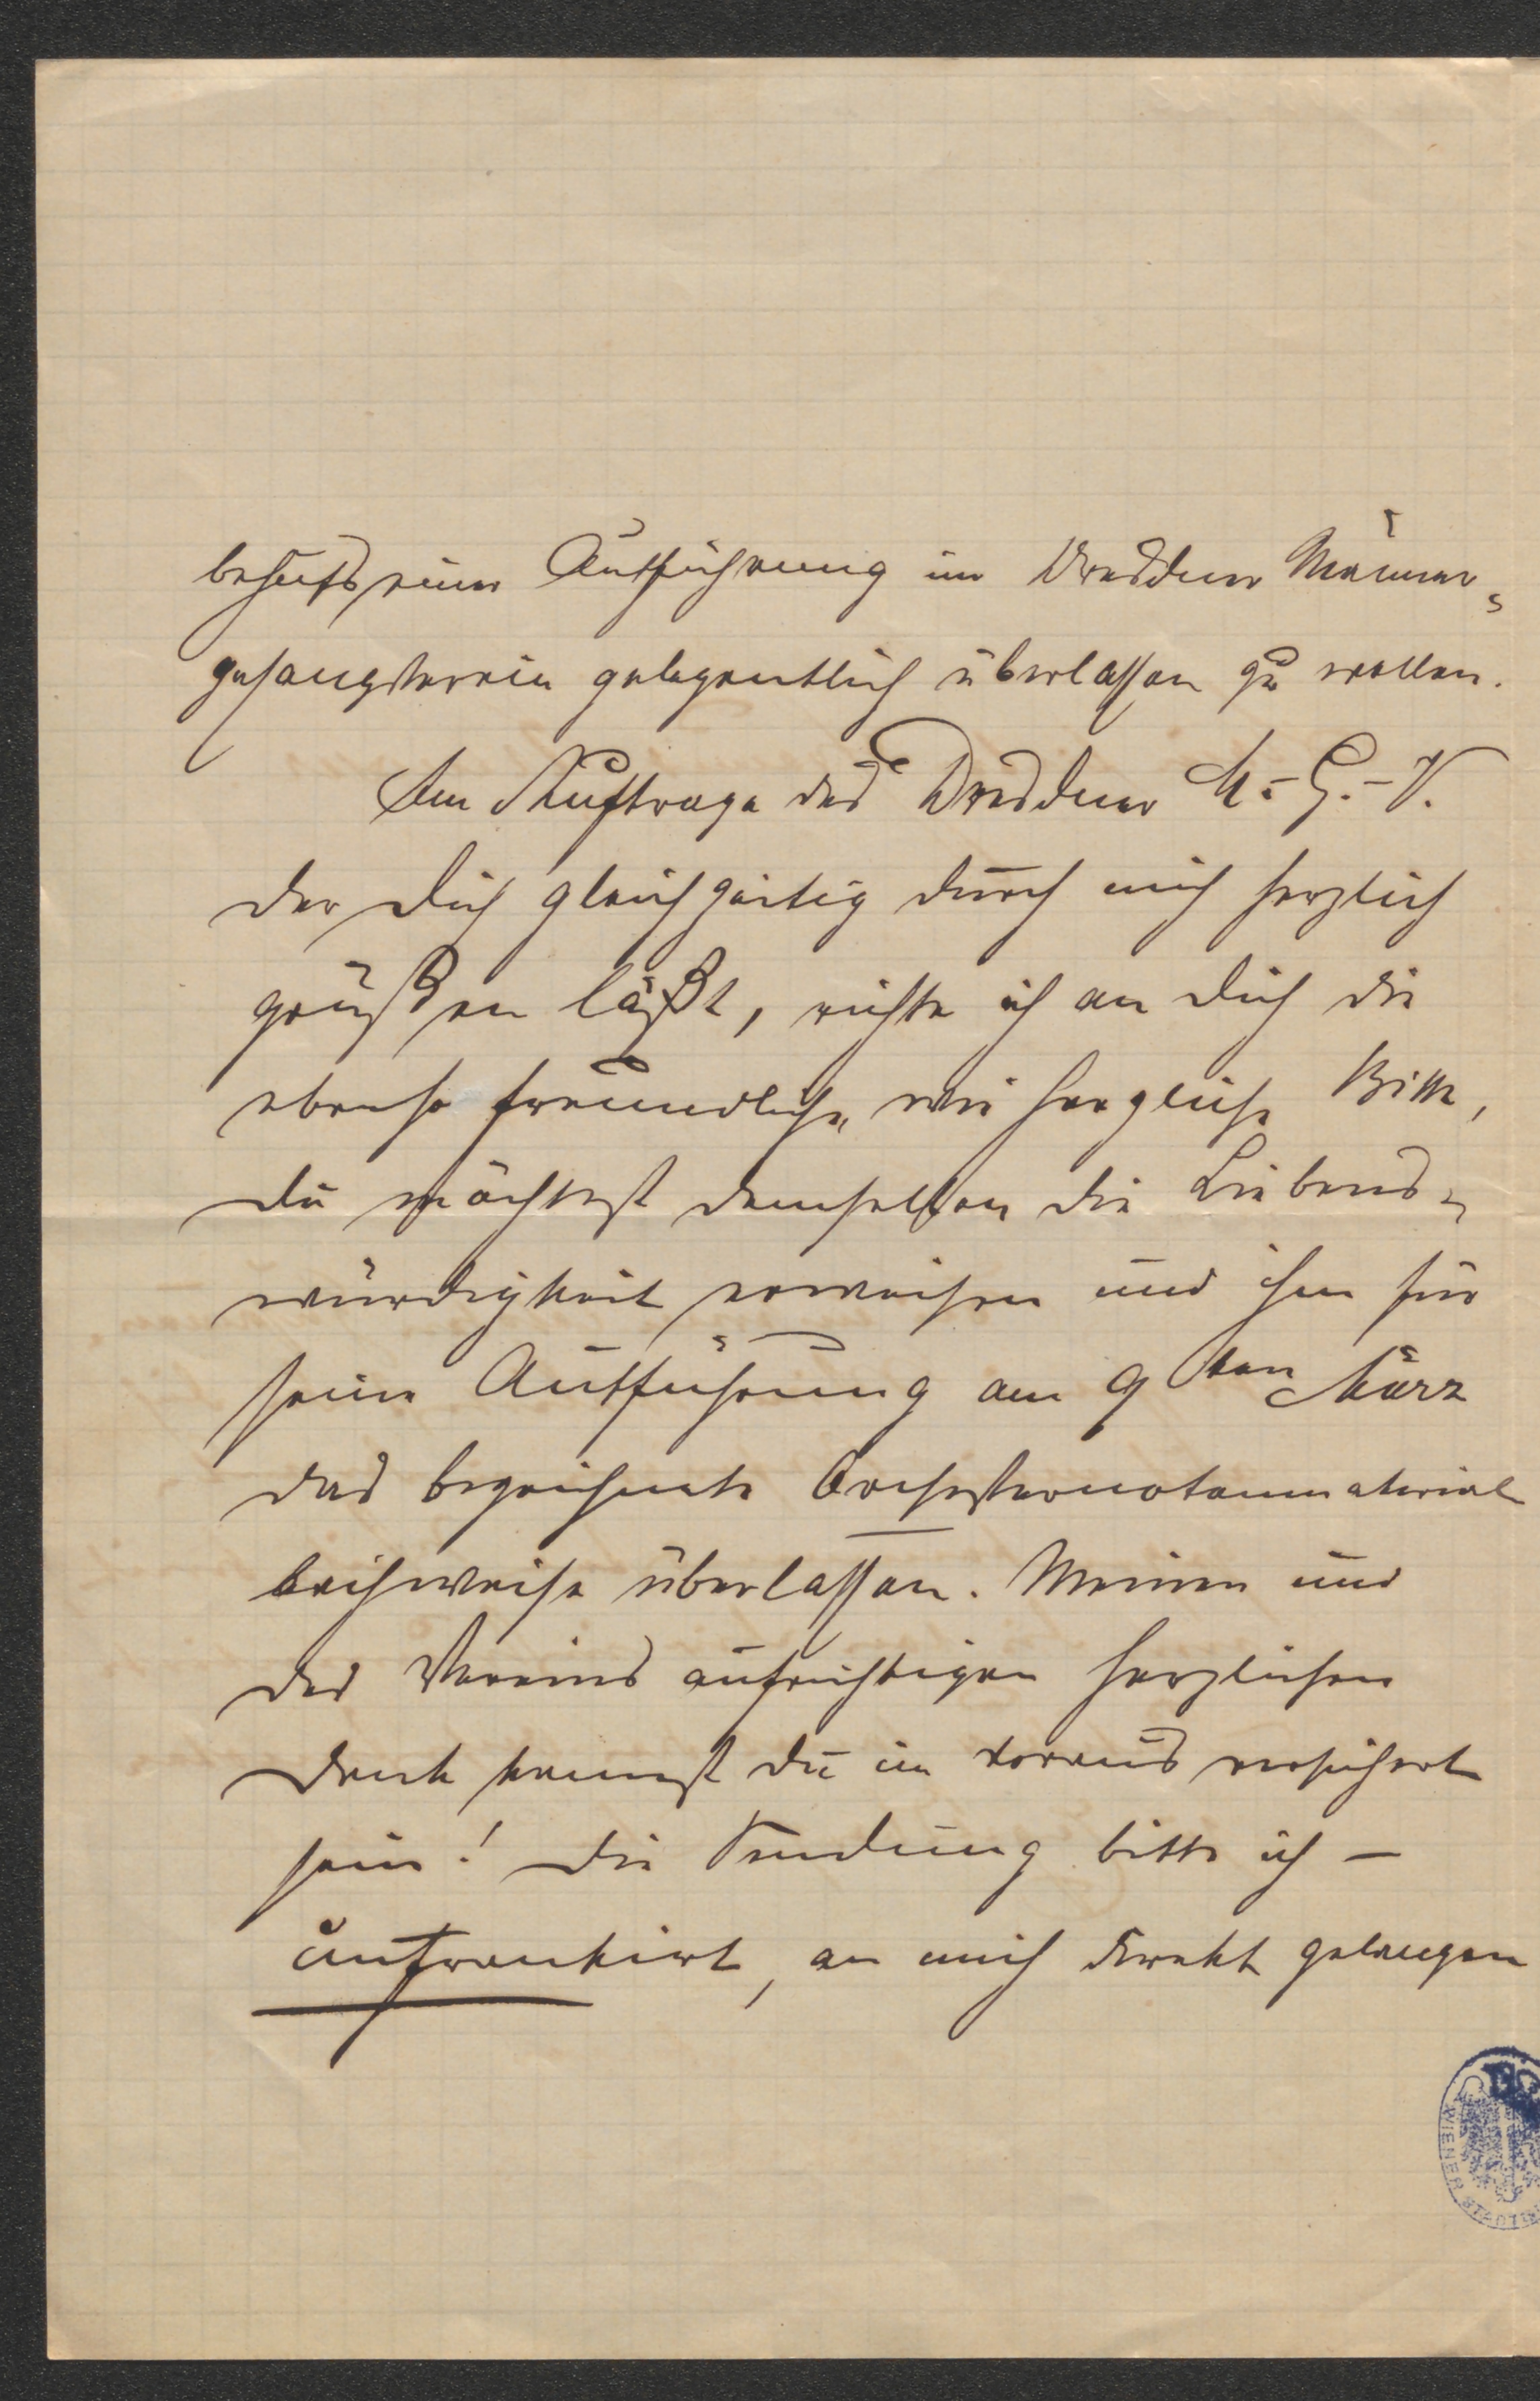 behufs einer Aufführung im Dresdner Männer-
gesangverein gelegentlich überlassen zu wollen.
Im Auftrage des Dresdner M.-G.-V.
der Dich gleichzeitig durch mich herzlich
grüßen läßt, richte ich an Dich die
ebenso freundliche, wie herzliche Bitte,
Du möchtest demselben die Liebens-
würdigkeit erweisen und ihm für
seine Aufführung am 9ten März
das bezeichnete Orchesternotenmaterial
leihweise überlassen. Meinen und
des Vereins aufrichtigen herzlichen
Dank kannst Du im voraus versichert
sein! Die Sendung bitte ich –
unfrankirt, an mich direkt gelangen
WIENER STADT